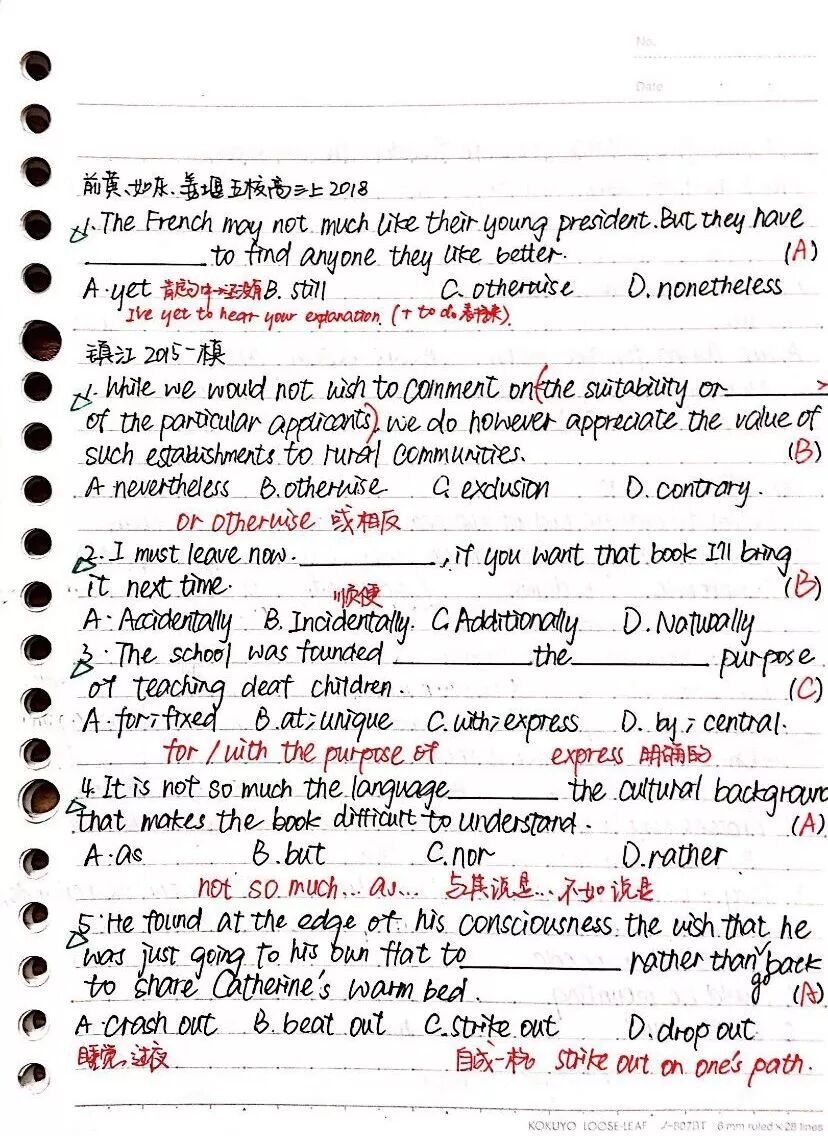 No.
Date
前黄、如东、姜堰五校高三上2018
1. The French may not much like their young president. But they have
________ to find anyone they like better. (A)
A. yet 肯定句中→还没有 B. still C. otherwise D. nonetheless
I've yet to hear your explanation. (+ to do 表将来).
镇江 2015一模
1. While we would not wish to comment on (the suitability or ________
of the particular applicants), we do however appreciate the value of
such establishments to rural communities. (B)
A nevertheless B. otherwise C. exclusion D. contrary.
or otherwise 或相反
2. I must leave now. ________, if you want that book I'll bring
it next time. (B)
顺便
A. Accidentally B. Incidentally. C. Additionally D. Naturally
3. The school was founded ________ the ________ purpose
of teaching deaf children. (C)
A. for; fixed B. at; unique C. with; express D. by; central.
for / with the purpose of express 明确的
4. It is not so much the language ________ the cultural background
that makes the book difficult to understand. (A)
A. as B. but C. nor D. rather
not so much... as... 与其说是...不如说是
5. He found at the edge of his consciousness the wish that he
was just going to his own flat to ________ rather than go back
to share Catherine's warm bed. (A)
A. crash out B. beat out C. strike out D. drop out
睡觉、过夜 自成一格 strike out on one's path.
KOKUYO LOOSE-LEAF 6 mm ruled × 28 lines